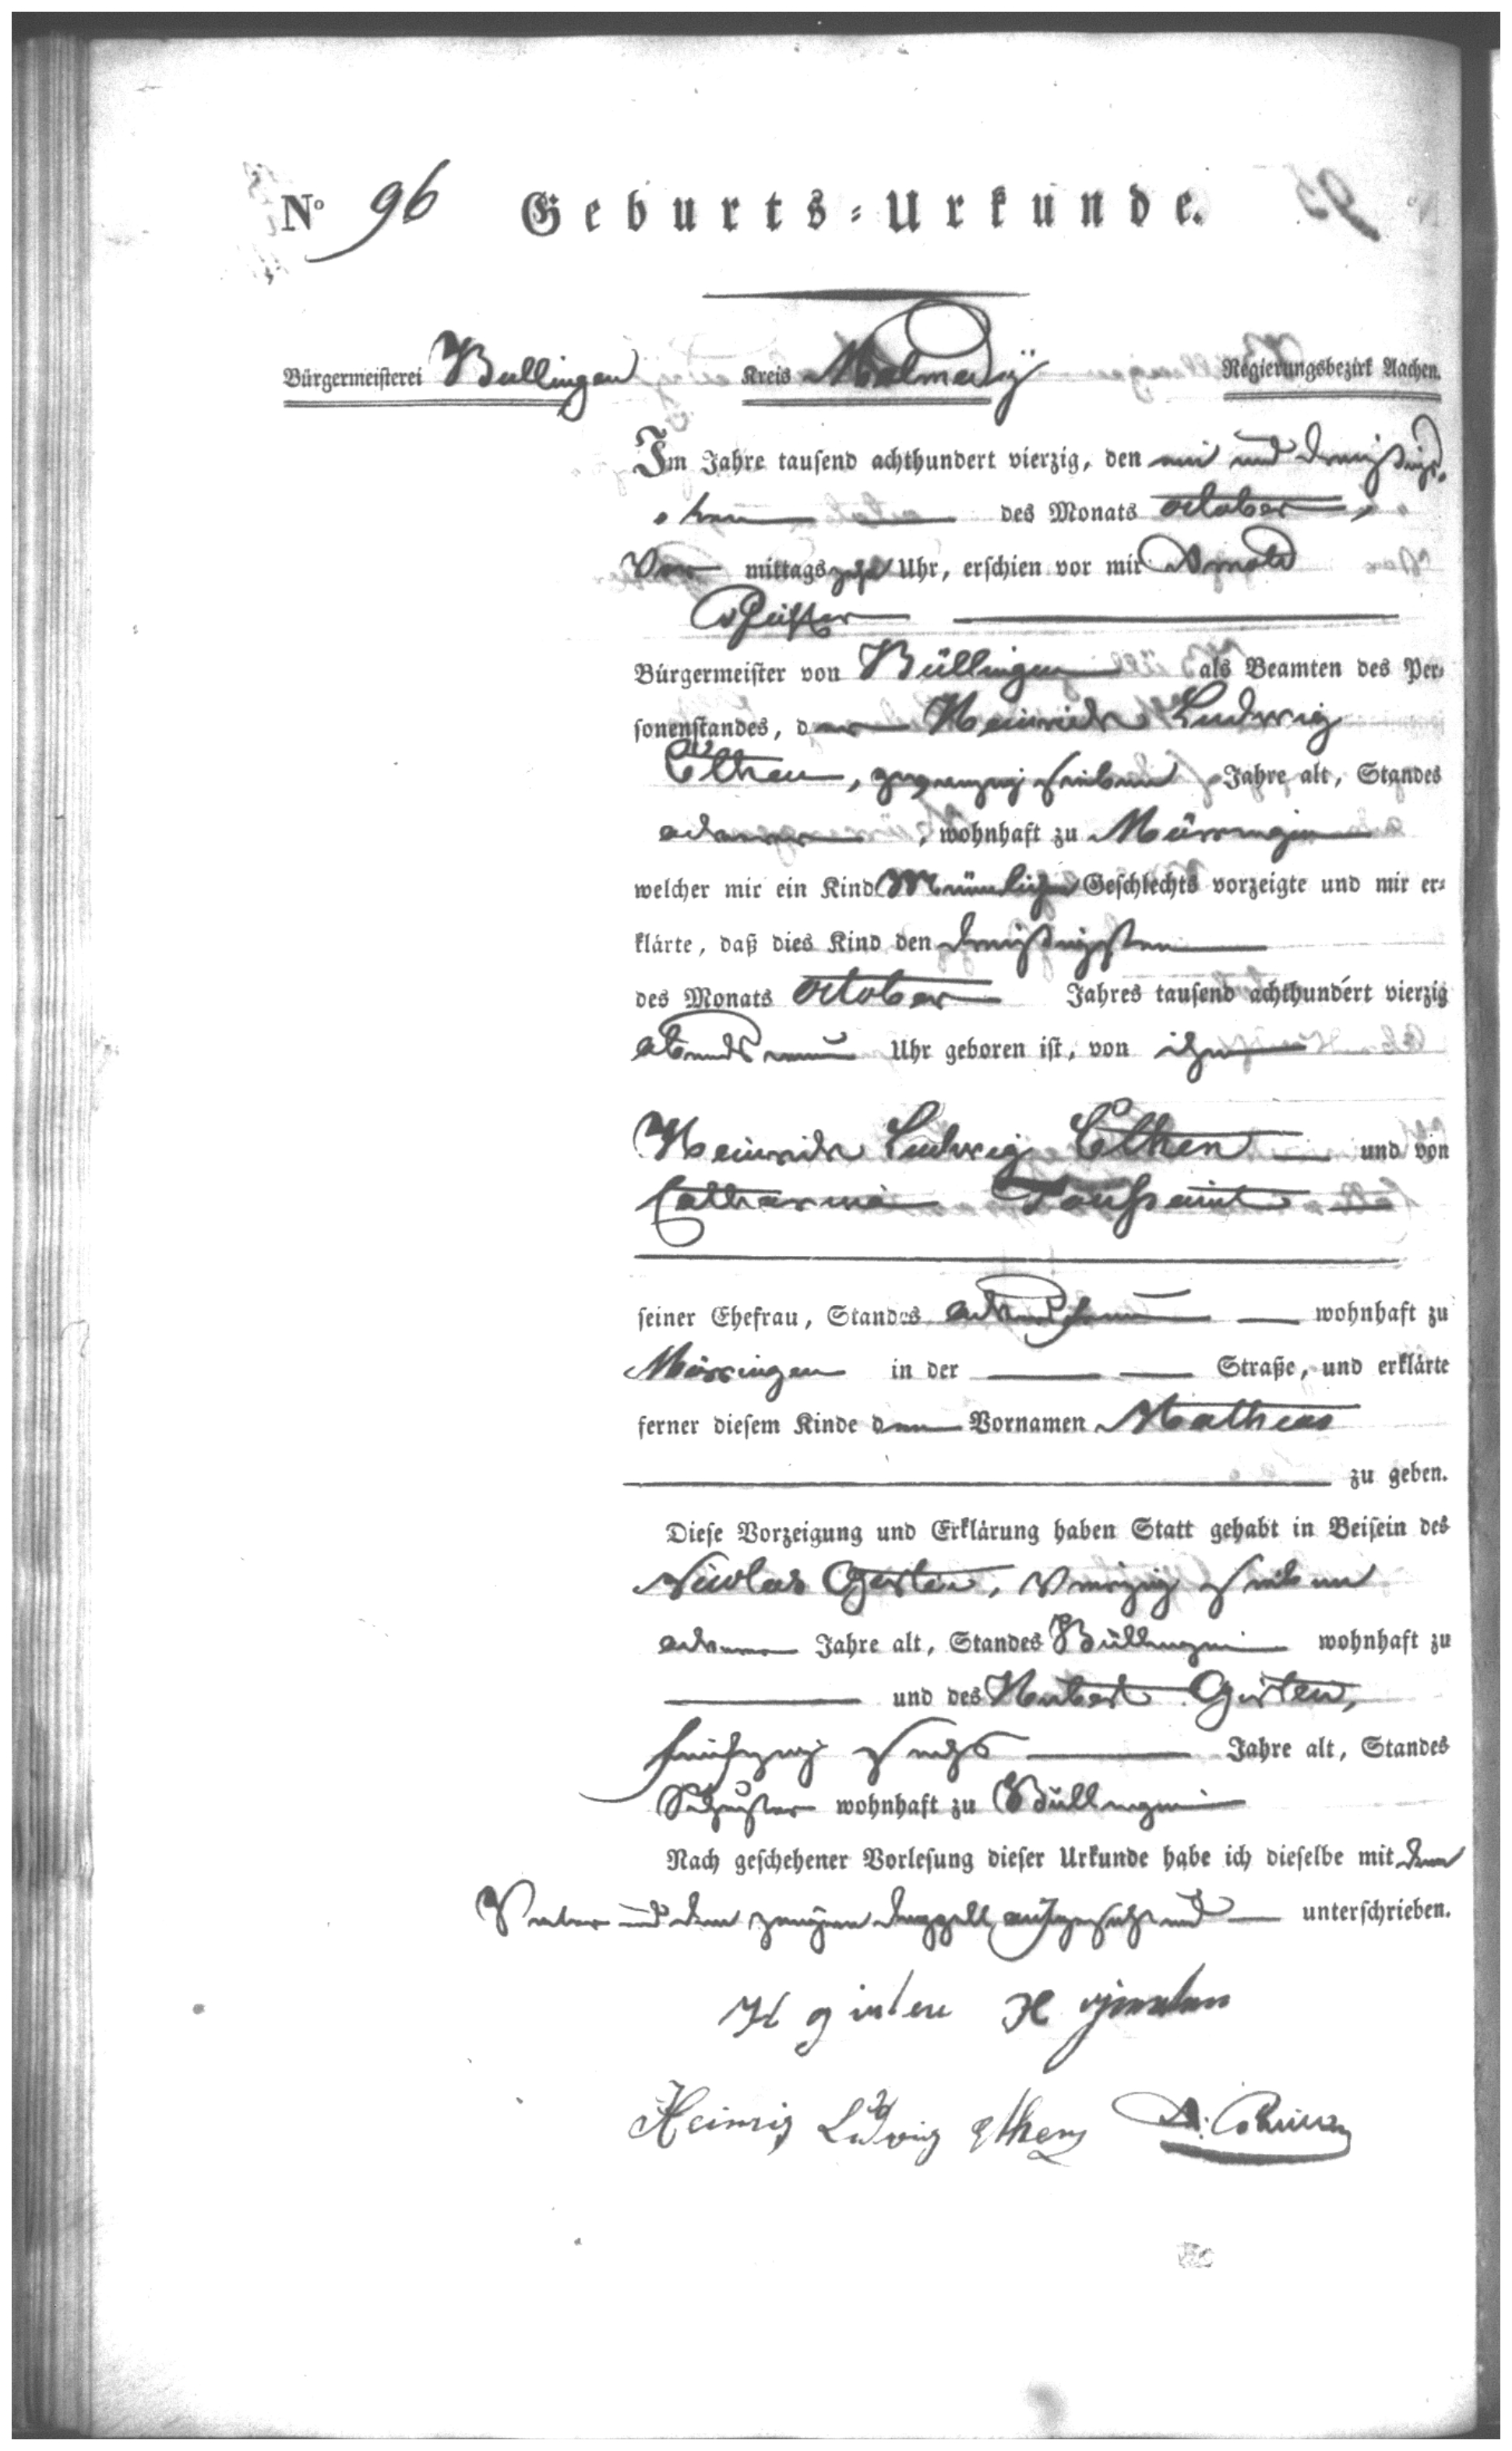 No 96 Geburts-Urkunde.
Bürgermeisterei Bullingen Kreis Malmedÿ Regierungsbezirk Aachen.
Im Jahre tausend achthundert vierzig, den ein und dreißigs,
ten des Monats october,
Vor mittags zehn Uhr, erschien vor mir Arnold
Bürgermeister von Büllingen als Beamten des Per-
sonenstandes, der Heinrich Ludwig
Ethen, zwanzig sieben Jahre alt, Standes
ackerer, wohnhaft zu Mürringen
welcher mir ein Kind Männlichen Geschlechts vorzeigte und mir er-
klärte, daß dies Kind den dreißigsten
des Monats october Jahres tausend achthundert vierzig
abends neun Uhr geboren ist, von ihm
Heinrich Ludwig Ethen und von
Catharina Toussaint
seiner Ehefrau, Standes wohnhaft zu
Mürringen in der Straße, und erklärte
ferner diesem Kinde den Vornamen Matheas
zu geben.
Diese Vorzeigung und Erklärung haben Statt gehabt in Beisein des
Nicolas Gerten, Vierzig sieben
ackerer Jahre alt, Standes Büllingen wohnhaft zu
und des Hubert Girten,
fünfzig sechs Jahre alt, Standes
Schuster wohnhaft zu Büllingen
Nach geschehener Vorlesung dieser Urkunde habe ich dieselbe mit dem
Vater und den zeugen doppelt unterschrieben.
Heinrig Ludwig Ethen